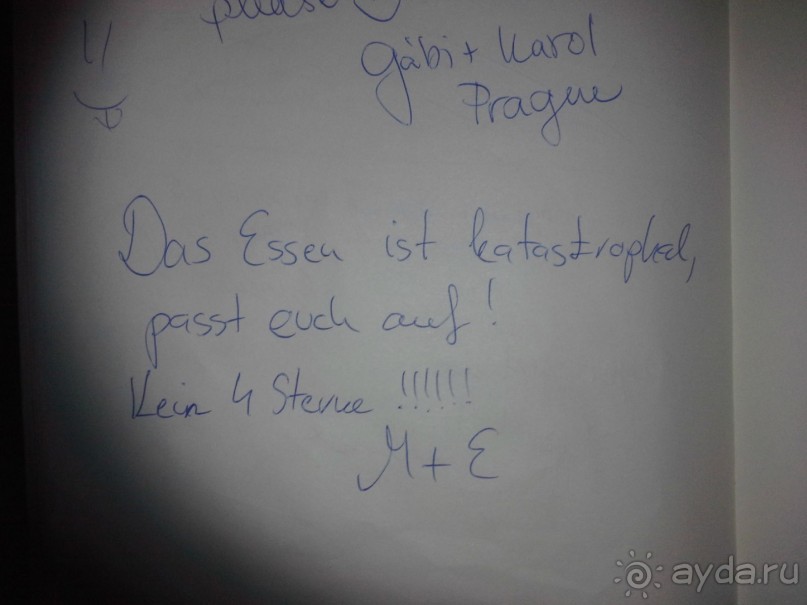 please
Gábi + Karol
Prague
Das Essen ist katastrophal,
passt euch auf!
Kein 4 Sterne !!!!!!
M + E
ayda.ru